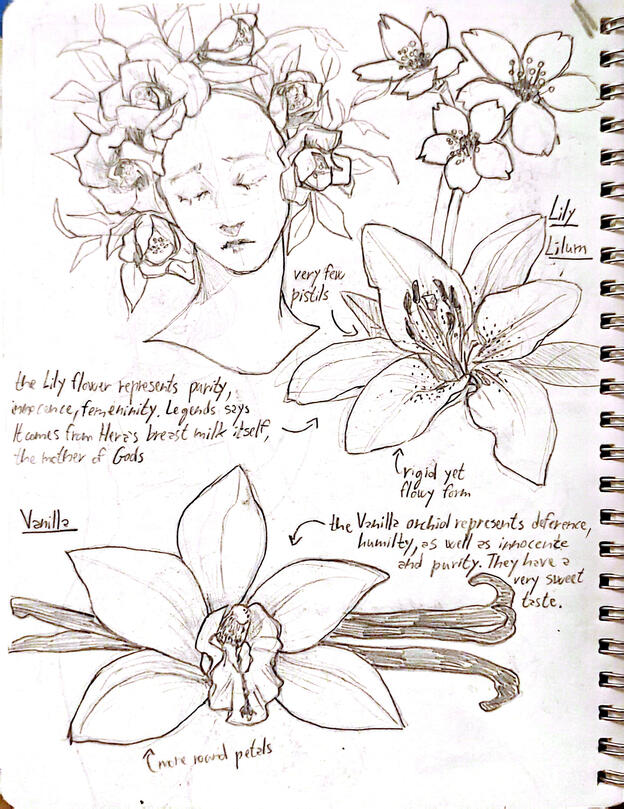 Lily
Lilum
very few
pistils
the Lily flower represents purity,
innocence, femeninity. Legends says
It comes from Hera's breast milk itself,
the mother of Gods
rigid yet
flowy form
Vanilla
the Vanilla orchid represents deference,
humilty, as well as innocente
and purity. They have a
very sweet
taste.
more round petals